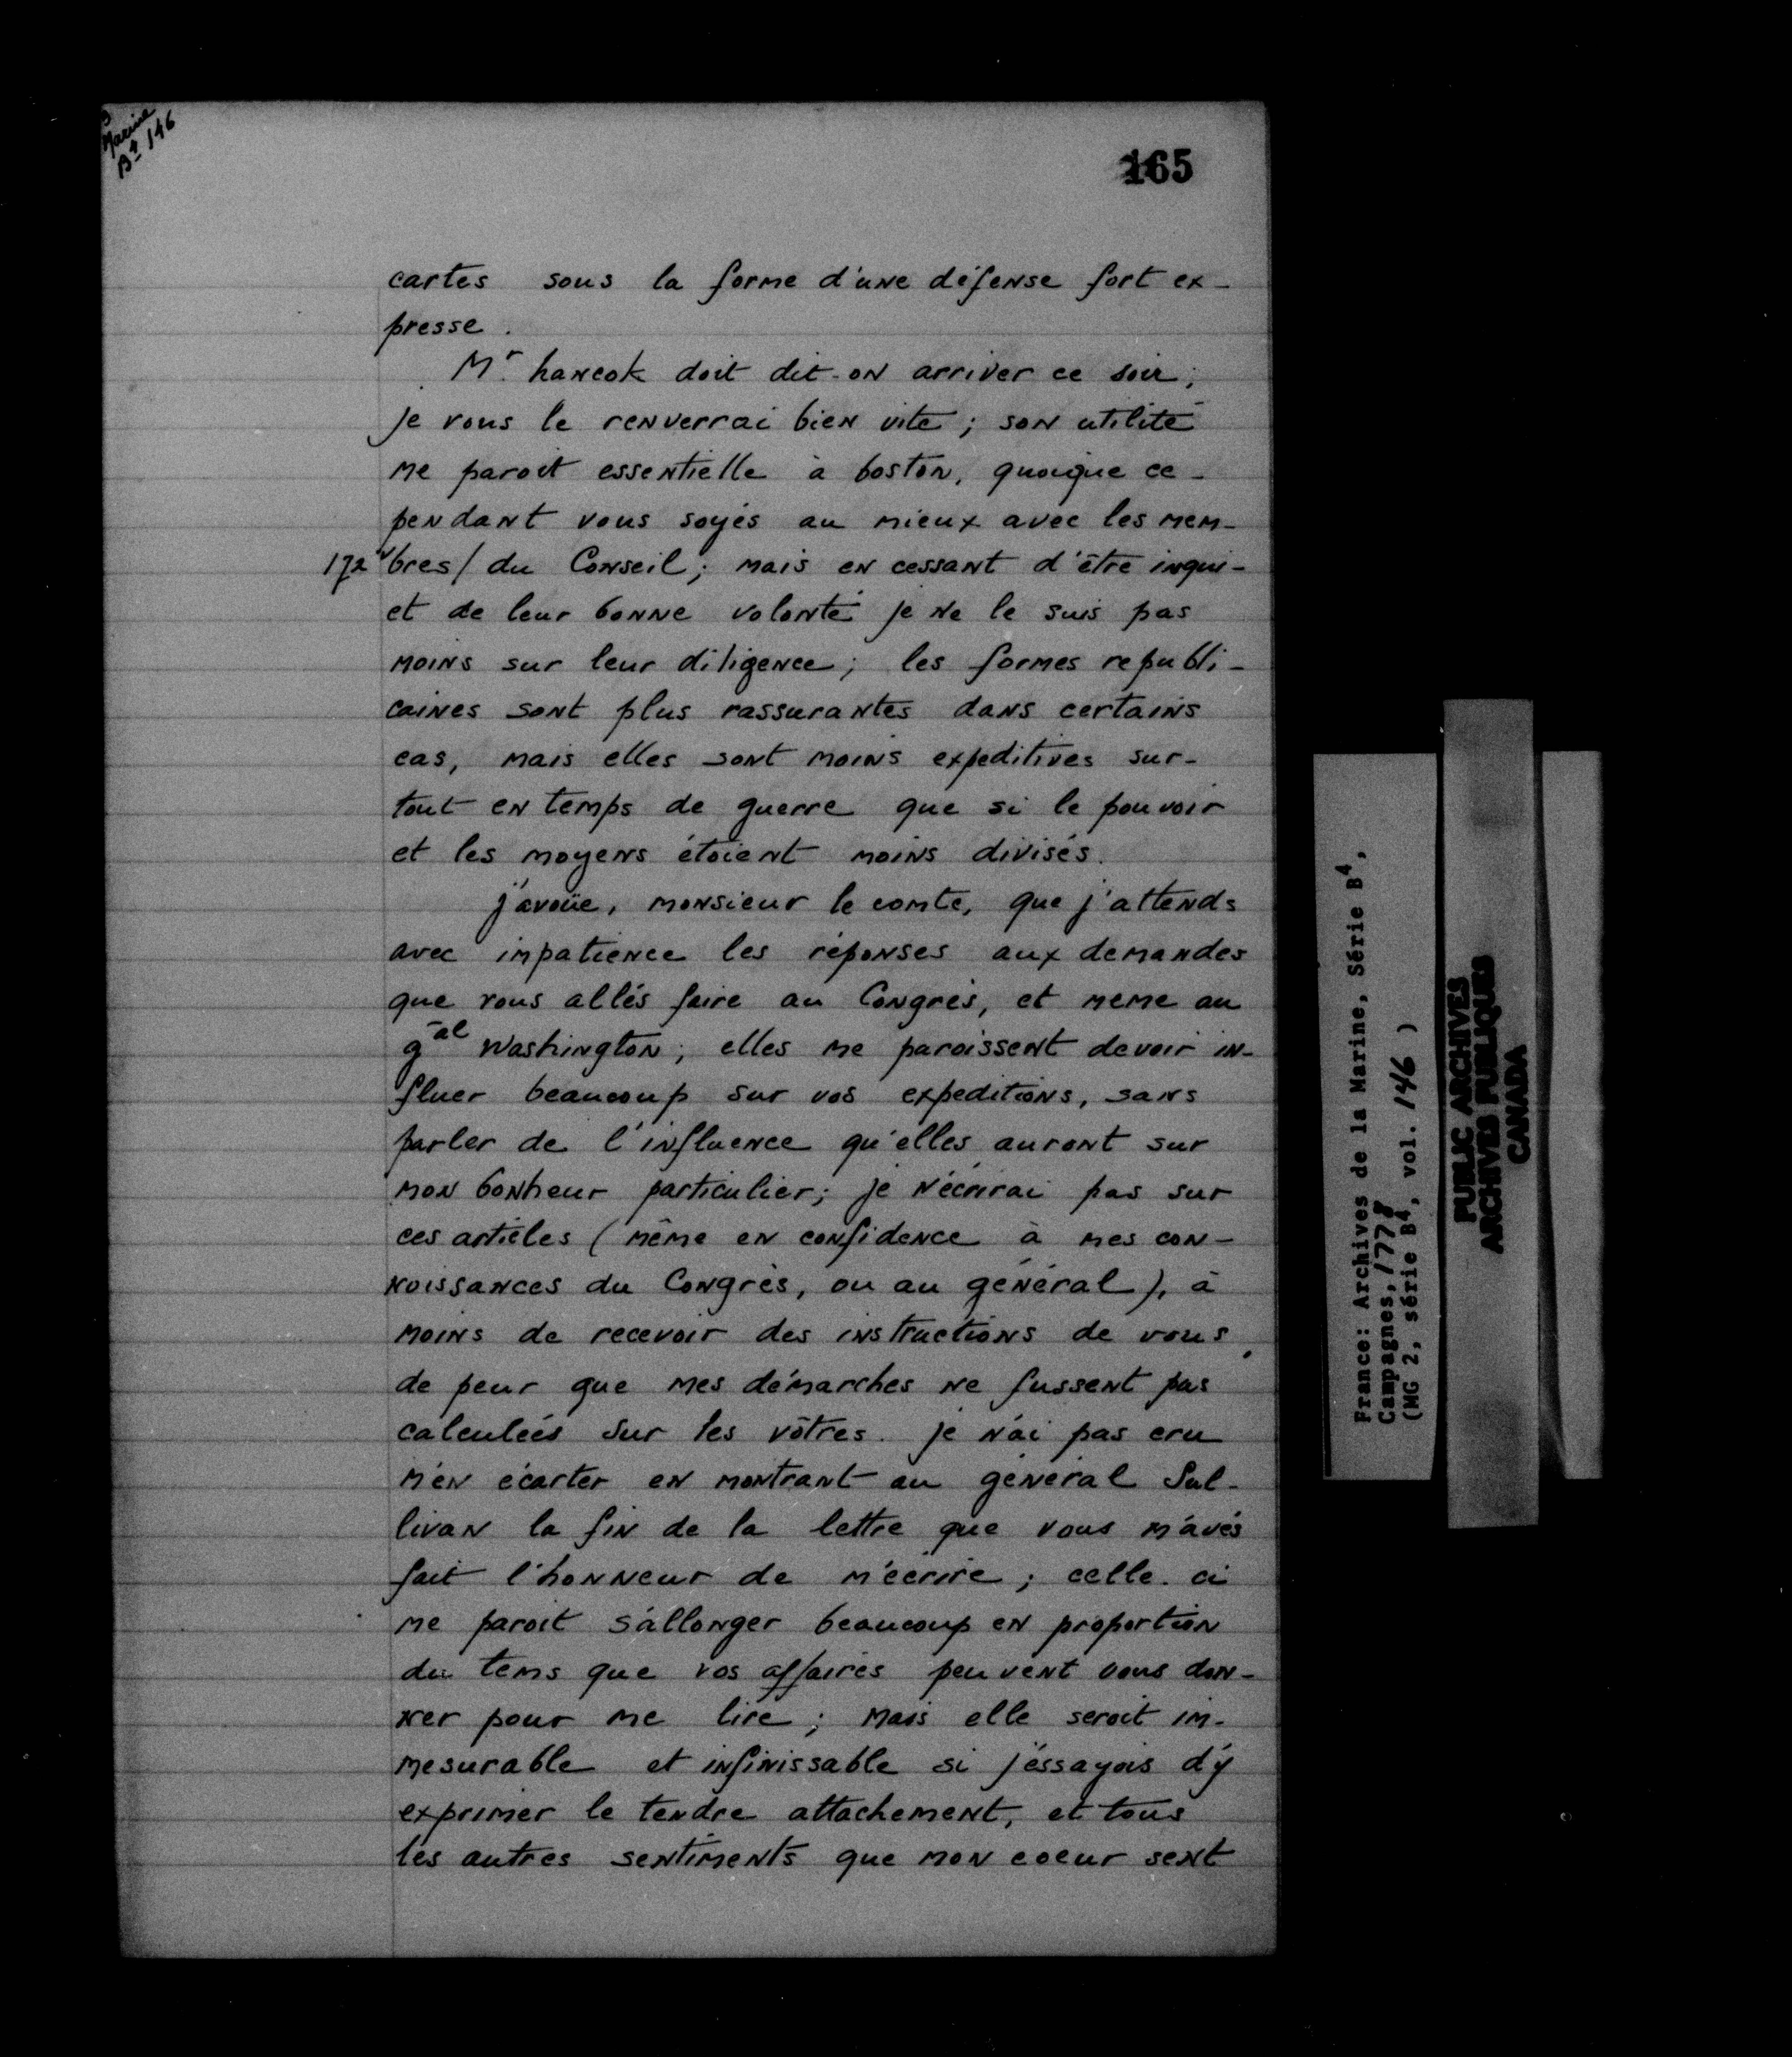 Marine
B4 146
165
cartes sous la forme d'une défense fort ex-
presse.
Mr. hancok doit dit-on arriver ce soir;
je vous le renverrai bien vite; son utilité
me paroit essentielle à boston, quoique ce-
pendant vous soyés au mieux avec les mem-
172v bres/ du Conseil; mais en cessant d'être inqui-
et de leur bonne volonté je ne le suis pas
moins sur leur diligence; les formes republi-
caines sont plus rassurantes dans certains
cas, mais elles sont moins expeditives sur-
tout en temps de guerre que si le pouvoir
et les moyens étoient moins divisés.
j'avoüe, monsieur le comte, que j'attends
avec impatience les réponses aux demandes
que vous allés faire au Congrès, et meme au
gal Washington; elles me paroissent devoir in-
fluer beaucoup sur vos expeditions, sans
parler de l'influence qu'elles auront sur
mon bonheur particulier; je n'écrirai pas sur
ces articles (même en confidence à mes con-
noissances du Congrès, ou au général), à
moins de recevoir des instructions de vous,
de peur que mes démarches ne fussent pas
calculées sur les vôtres. je n'ai pas cru
m'en écarter en montrant au général Sul-
livan la fin de la lettre que vous m'avés
fait l'honneur de m'écrire; celle-ci
me paroit s'allonger beaucoup en proportion
du tems que vos affaires peuvent vous don-
ner pour me lire; mais elle seroit im-
mesurable et infinissable si j'éssayois d'y
exprimer le tendre attachement, et tous
les autres sentiments que mon coeur sent
France: Archives de la Marine, Série B4,
Campagnes, 1778
(MG 2, série B4, vol. 146 )
PUBLIC ARCHIVES
ARCHIVES PUBLIQUES
CANADA